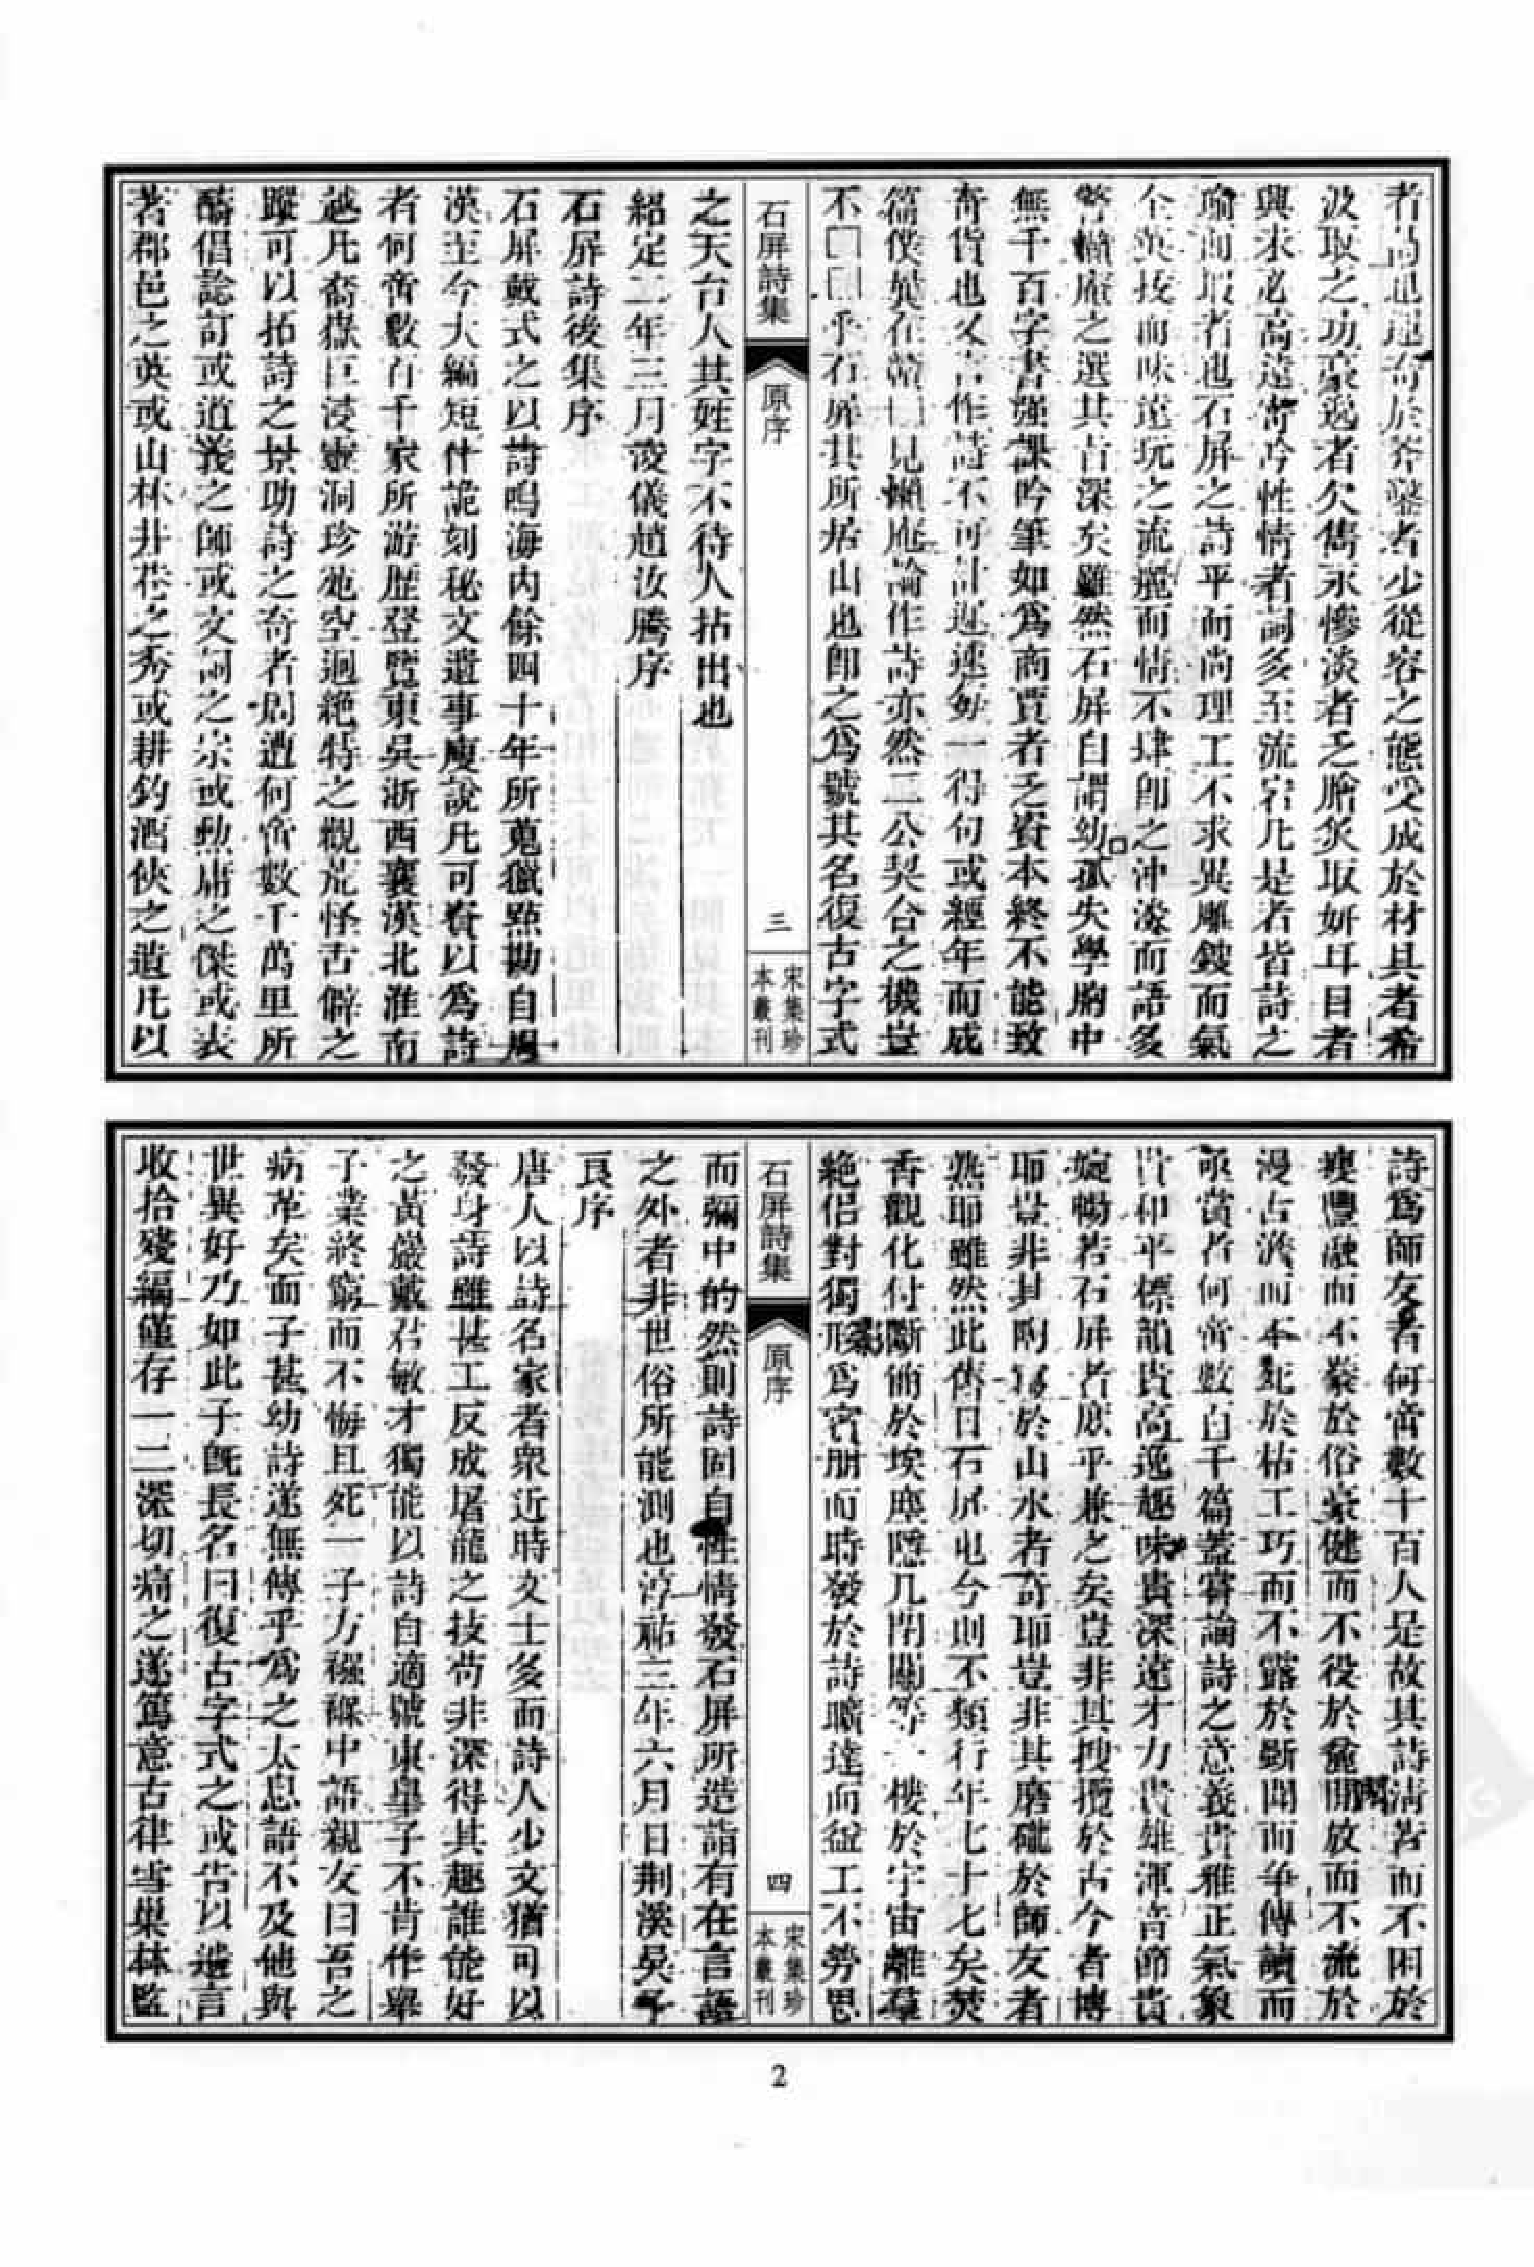 者尚也運奇於斧鑿者少從容之態受成於材具者希
波取之功豪逸者欠雋永慘淡者乏膾炙取妍耳目者
興求必高遠寄吟性情者詞多至流宕凡是者皆詩之
瑜而瑕者也石屏之詩平而尚理工不求異雕鎪而氣
全英拔而味遠玩之流麗而情不肆卽之沖淡而語多
警懶庵之選其旨深矣雖然石屏自謂幼孤失學胸中
無千百字書強課吟筆如爲商賈者乏資本終不能致
奇貨也又言作詩不可計遲速每一得句或經年而成
篇僕嘗在 見懶庵論作詩亦然二公契合之機豈
不□□然乎石屏其所居山也卽之爲號其名復古字式
石屏詩集
原序
三
宋集珍
本叢刊
之天台人其姓字不待人拈出也
紹定二年三月浚儀趙汝騰序
石屏詩後集序
石屏戴式之以詩鳴海內餘四十年所蒐獵點勘自周
漢至今大編短什詭刻秘文遺事廋說凡可資以爲詩
者何啻數百千家所游歷登覽東吳浙西襄漢北淮南
越凡喬嶽巨浸靈洞珍苑空迥絶特之觀荒怪古僻之
蹤可以拓詩之景助詩之奇者周遭何啻數千萬里所
酬倡諗訂或道義之師或文詞之宗或勲庸之傑或表
著郡邑之英或山林井巷之秀或耕釣酒俠之遺凡以
詩爲師友者何啻數十百人是故其詩清苦而不困於
瘦豐融而不豢於俗豪健而不役於麄閎放而不流於
漫古淡而不死於枯工巧而不露於斲聞而爭傳讀而
亟賞者何啻數百千篇蓋嘗論詩之意義貴雅正氣象
貴和平標韻貴高逸趣味貴深遠才力貴雄渾音節貴
婉暢若石屏者庶乎兼之矣豈非其搜攬於古今者博
耶豈非其陶寫於山水者奇耶豈非其磨礲於師友者
熟耶雖然此舊日石屏也今則不類行年七十七矣焚
香觀化付斷簡於埃塵隱几閉關等一樓於宇宙離羣
絶侶對獨影爲賓朋而時發於詩曠達而益工不勞思
石屏詩集
原序
四
宋集珍
本叢刊
而彌中的然則詩固自性情發石屏所造詣有在言語
之外者非世俗所能測也淳祐三年六月日荆溪吳子
良序
唐人以詩名家者衆近時文士多而詩人少文猶可以
發身詩雖甚工反成屠龍之技苟非深得其趣誰能好
之黃巖戴君敏才獨能以詩自適號東臯子不肯作舉
子業終窮而不悔且死一子方襁褓中語親友曰吾之
病革矣而子甚幼詩遂無傳乎爲之太息語不及他與
世異好乃如此子旣長名曰復古字式之或告以遺言
收拾殘編僅存一二深切痛之遂篤意古律雪巢林監
2